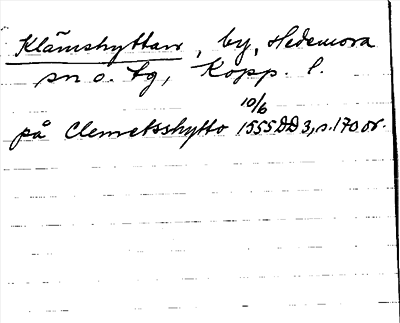 Klämshyttan, by, Hedemora
sn o. tg, Kopp. l.
10/6
på Clemetsshytto 1555 DD 3, s. 170 or.